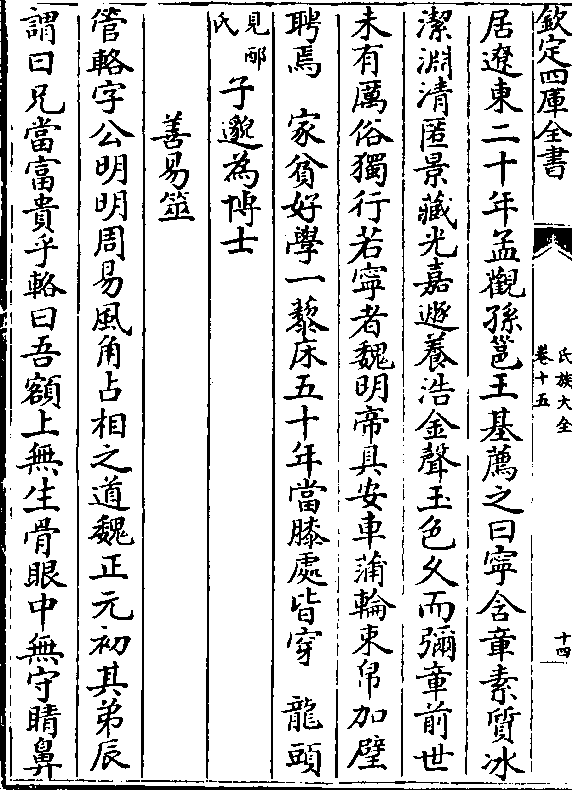 欽定四庫全書
氏族大全
卷十五
十四
居遼東二十年孟觀孫邕王基薦之曰寧含章素質冰
潔淵清匿景藏光嘉遯養浩金聲玉色久而彌章前世
未有厲俗獨行若寧者魏明帝具安車蒲輪束帛加璧
聘焉 家貧好學一藜床五十年當膝處皆穿 龍頭
見邴
氏 子邈為博士
善易筮
管輅字公明明周易風角占相之道魏正元初其弟辰
謂曰兄當富貴乎輅曰吾額上無生骨眼中無守睛鼻